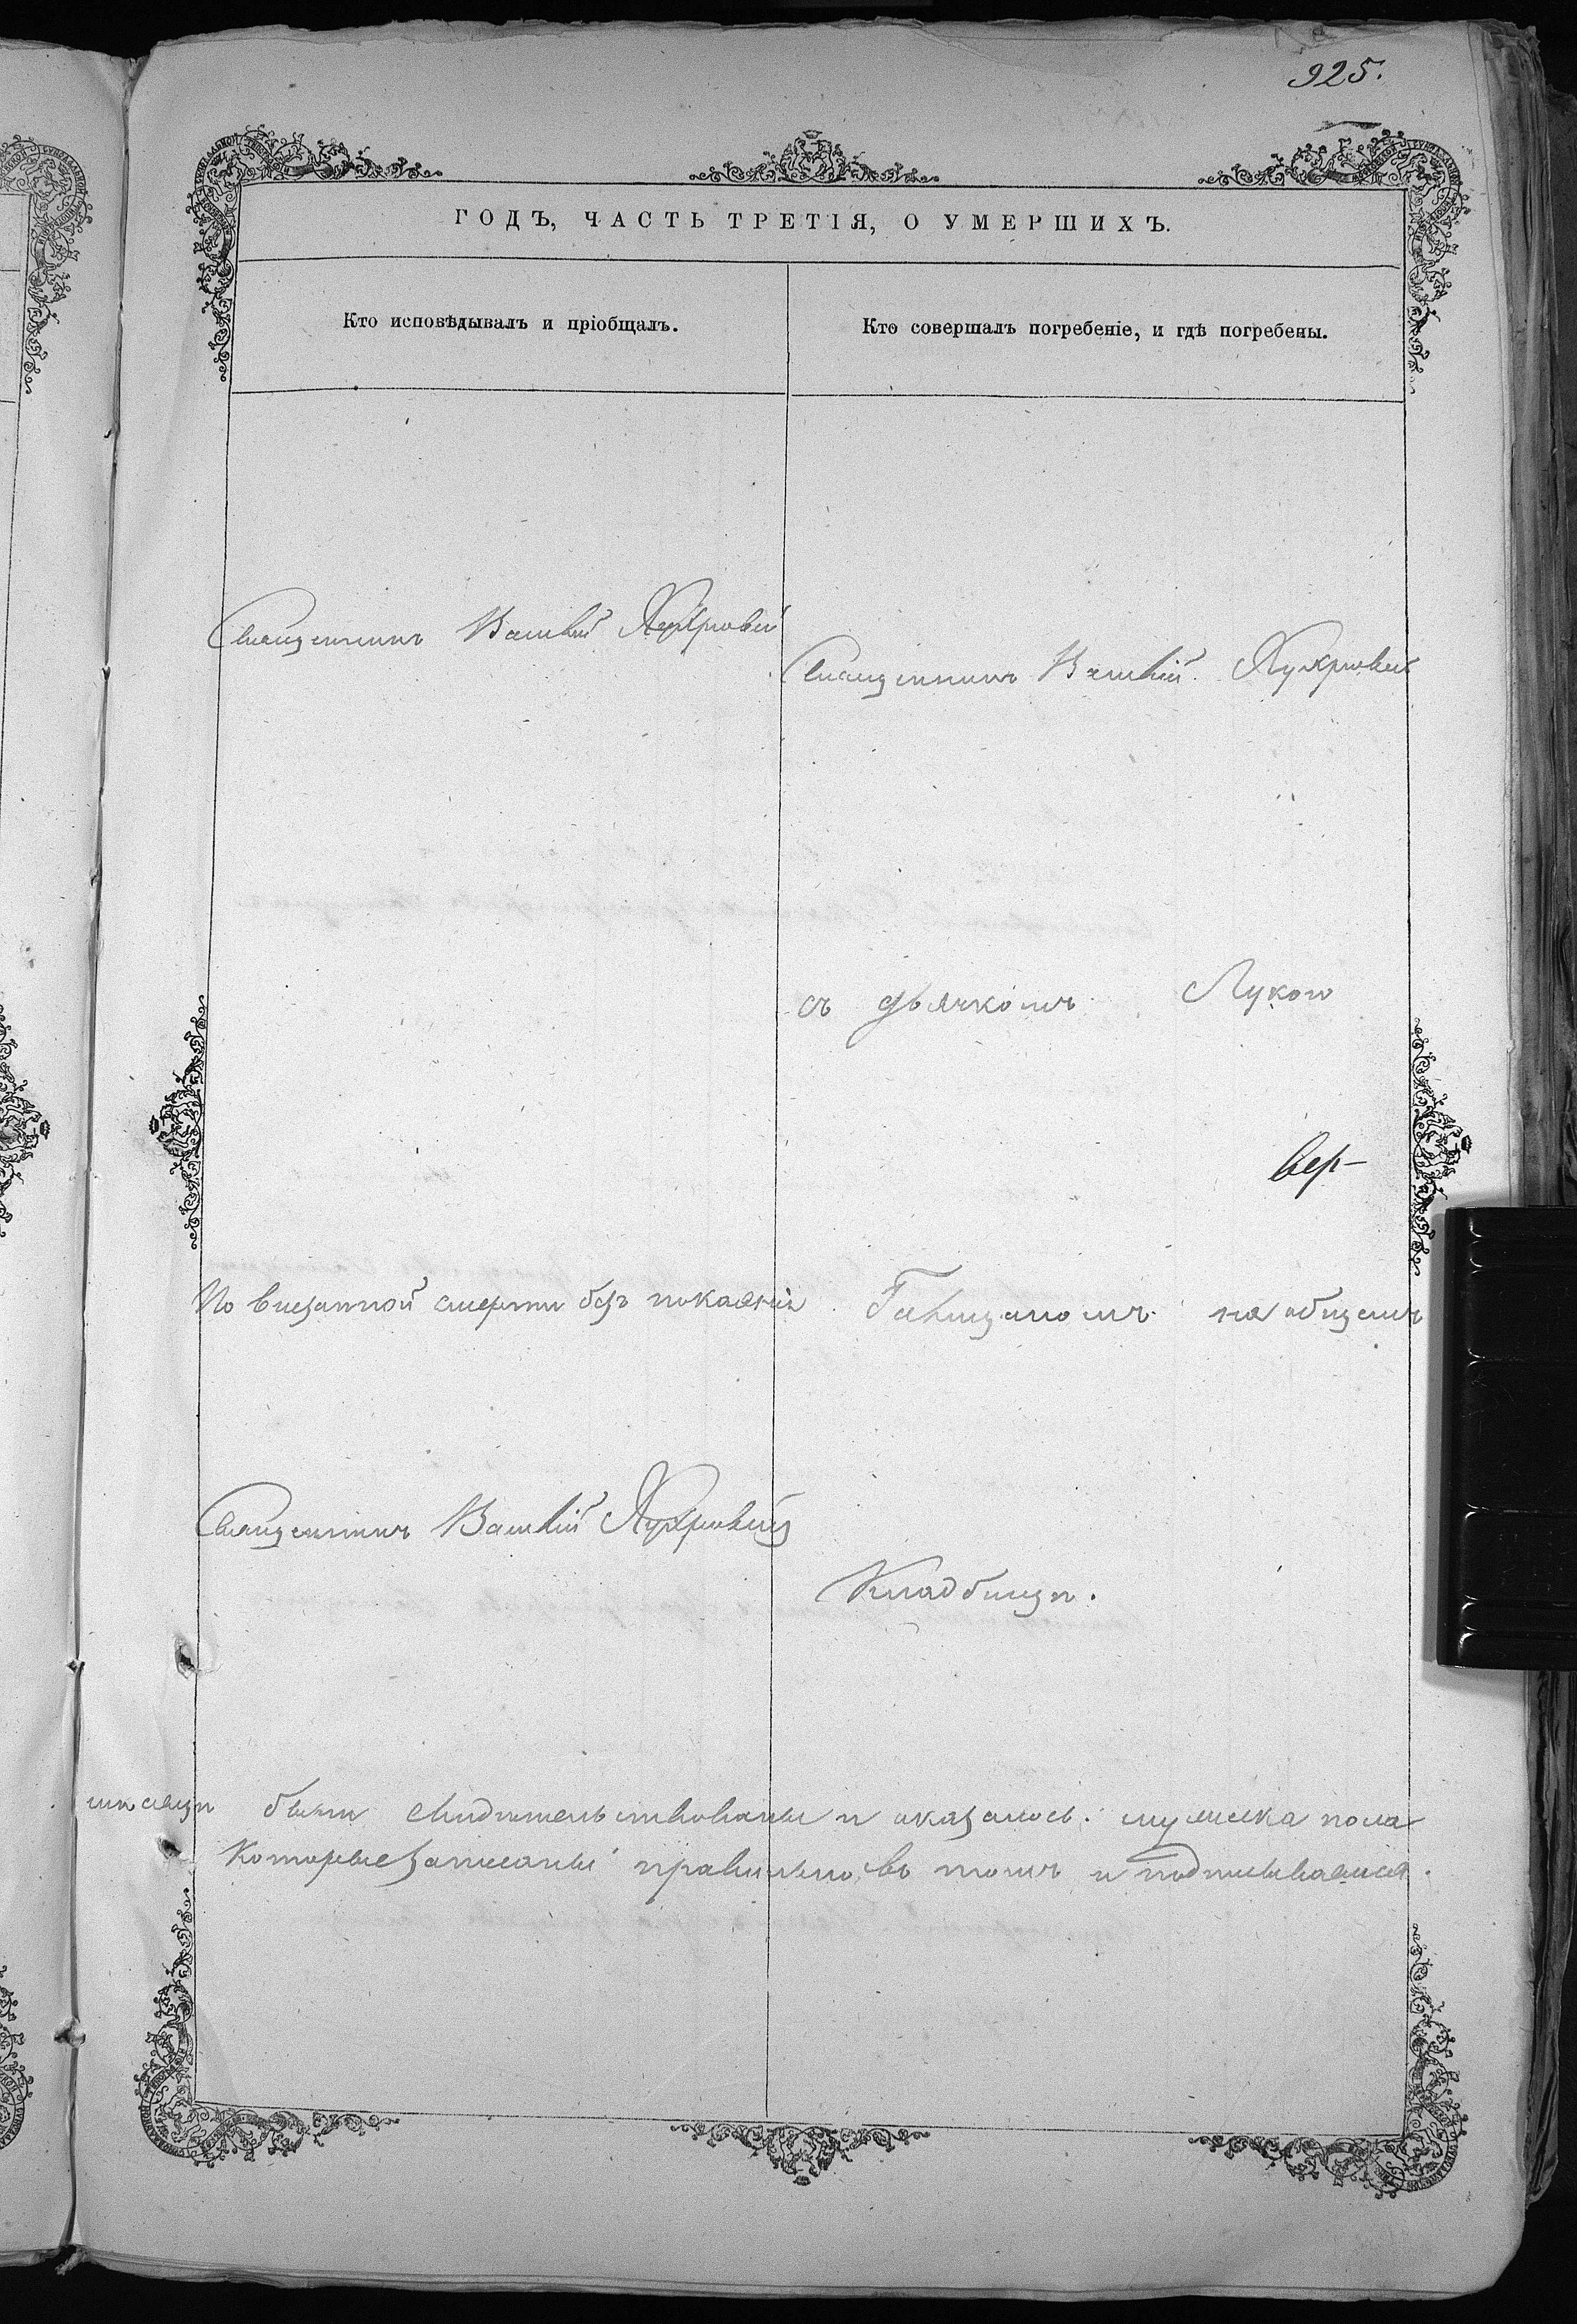 925.
ГОДЪ, ЧАСТЬ ТРЕТІЯ, О УМЕРШИХЪ.
Кто исповѣдывалъ и пріобщалъ.
Кто совершалъ погребеніе, и гдѣ погребены.
Священникъ Василій
Священникъ Василій
съ дьячкомъ Лукою
вер-
По внезапной смерти безъ покаянія
на общемъ
Священникъ Василій
Кладбищѣ.
мѣсяцѣ были свидѣтельствованы и оказалось: мужеска пола
Которые записаны правильно, въ томъ и подписываемся.